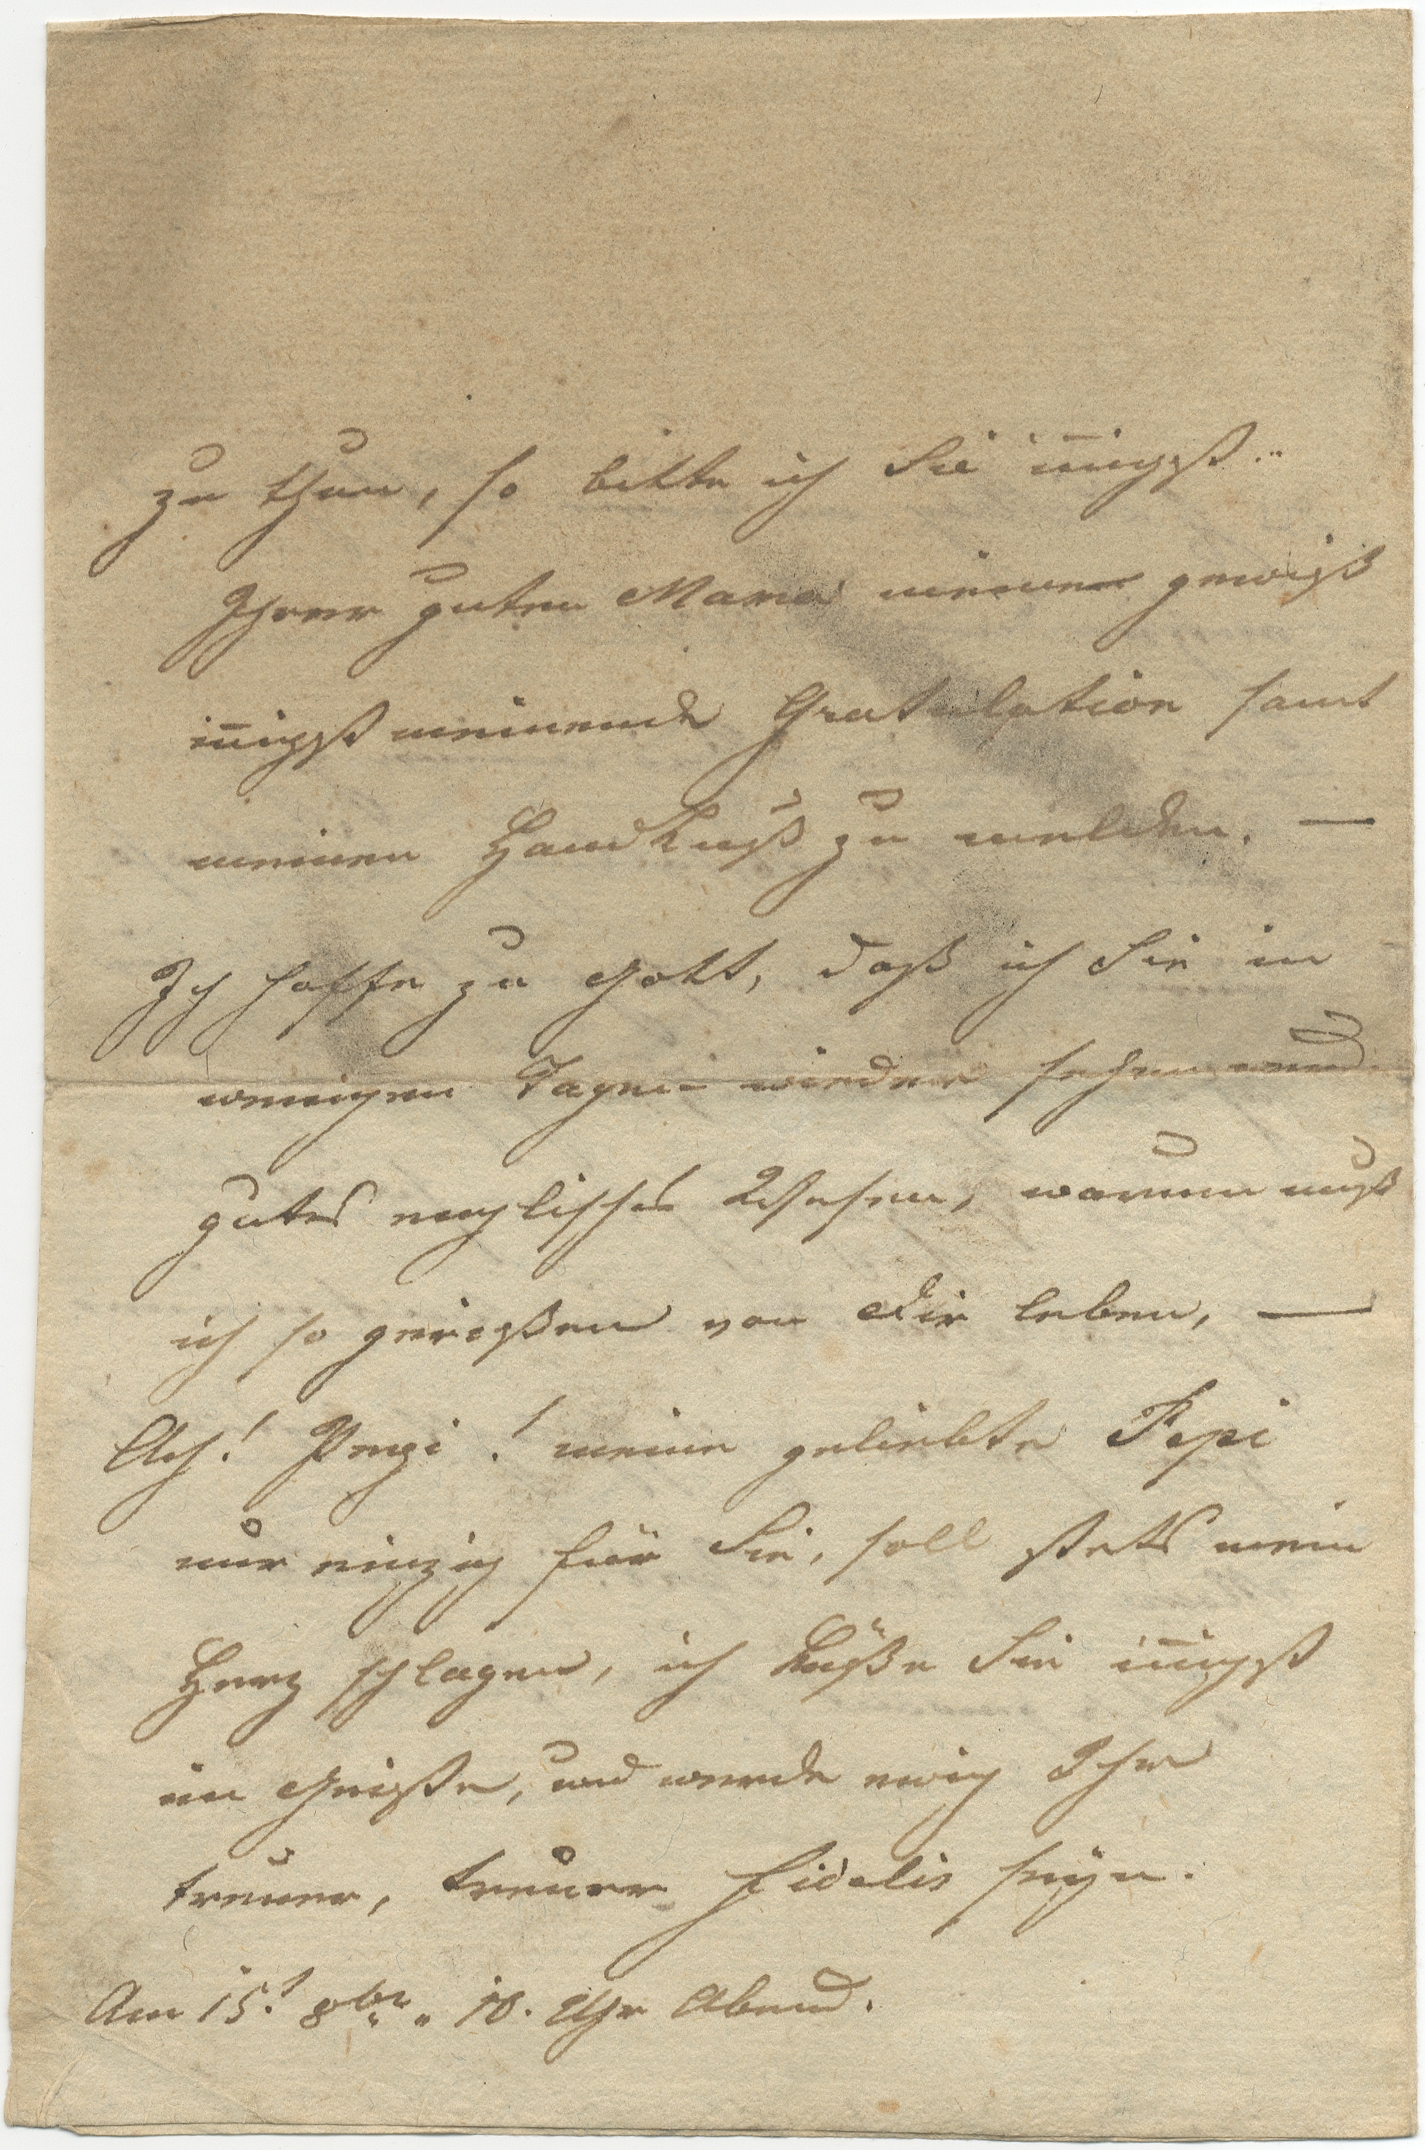 zu thun, so bitte ich Sie iñigst
Ihrer guten Mama meine gewiß
iñigst meinende Gratulation samt
meinen Handkuß zu melden. —
Ich hoffe zu Gott, daß ich Sie in
wenigen Tagen wieder sehen werd.
gutes englisches Wesen, warum muß
ich so gerißen von Dir leben, —
Ach! Pepi! meine geliebte Pepi
nur einzig für Sie, soll stets mein
Herz schlagen, ich küße Sie iñigst
im Geiste, und werde ewig Ihr
treuer, treuer Fidelis seÿn.
Am 15t 8br. 10. Uhr Abend.